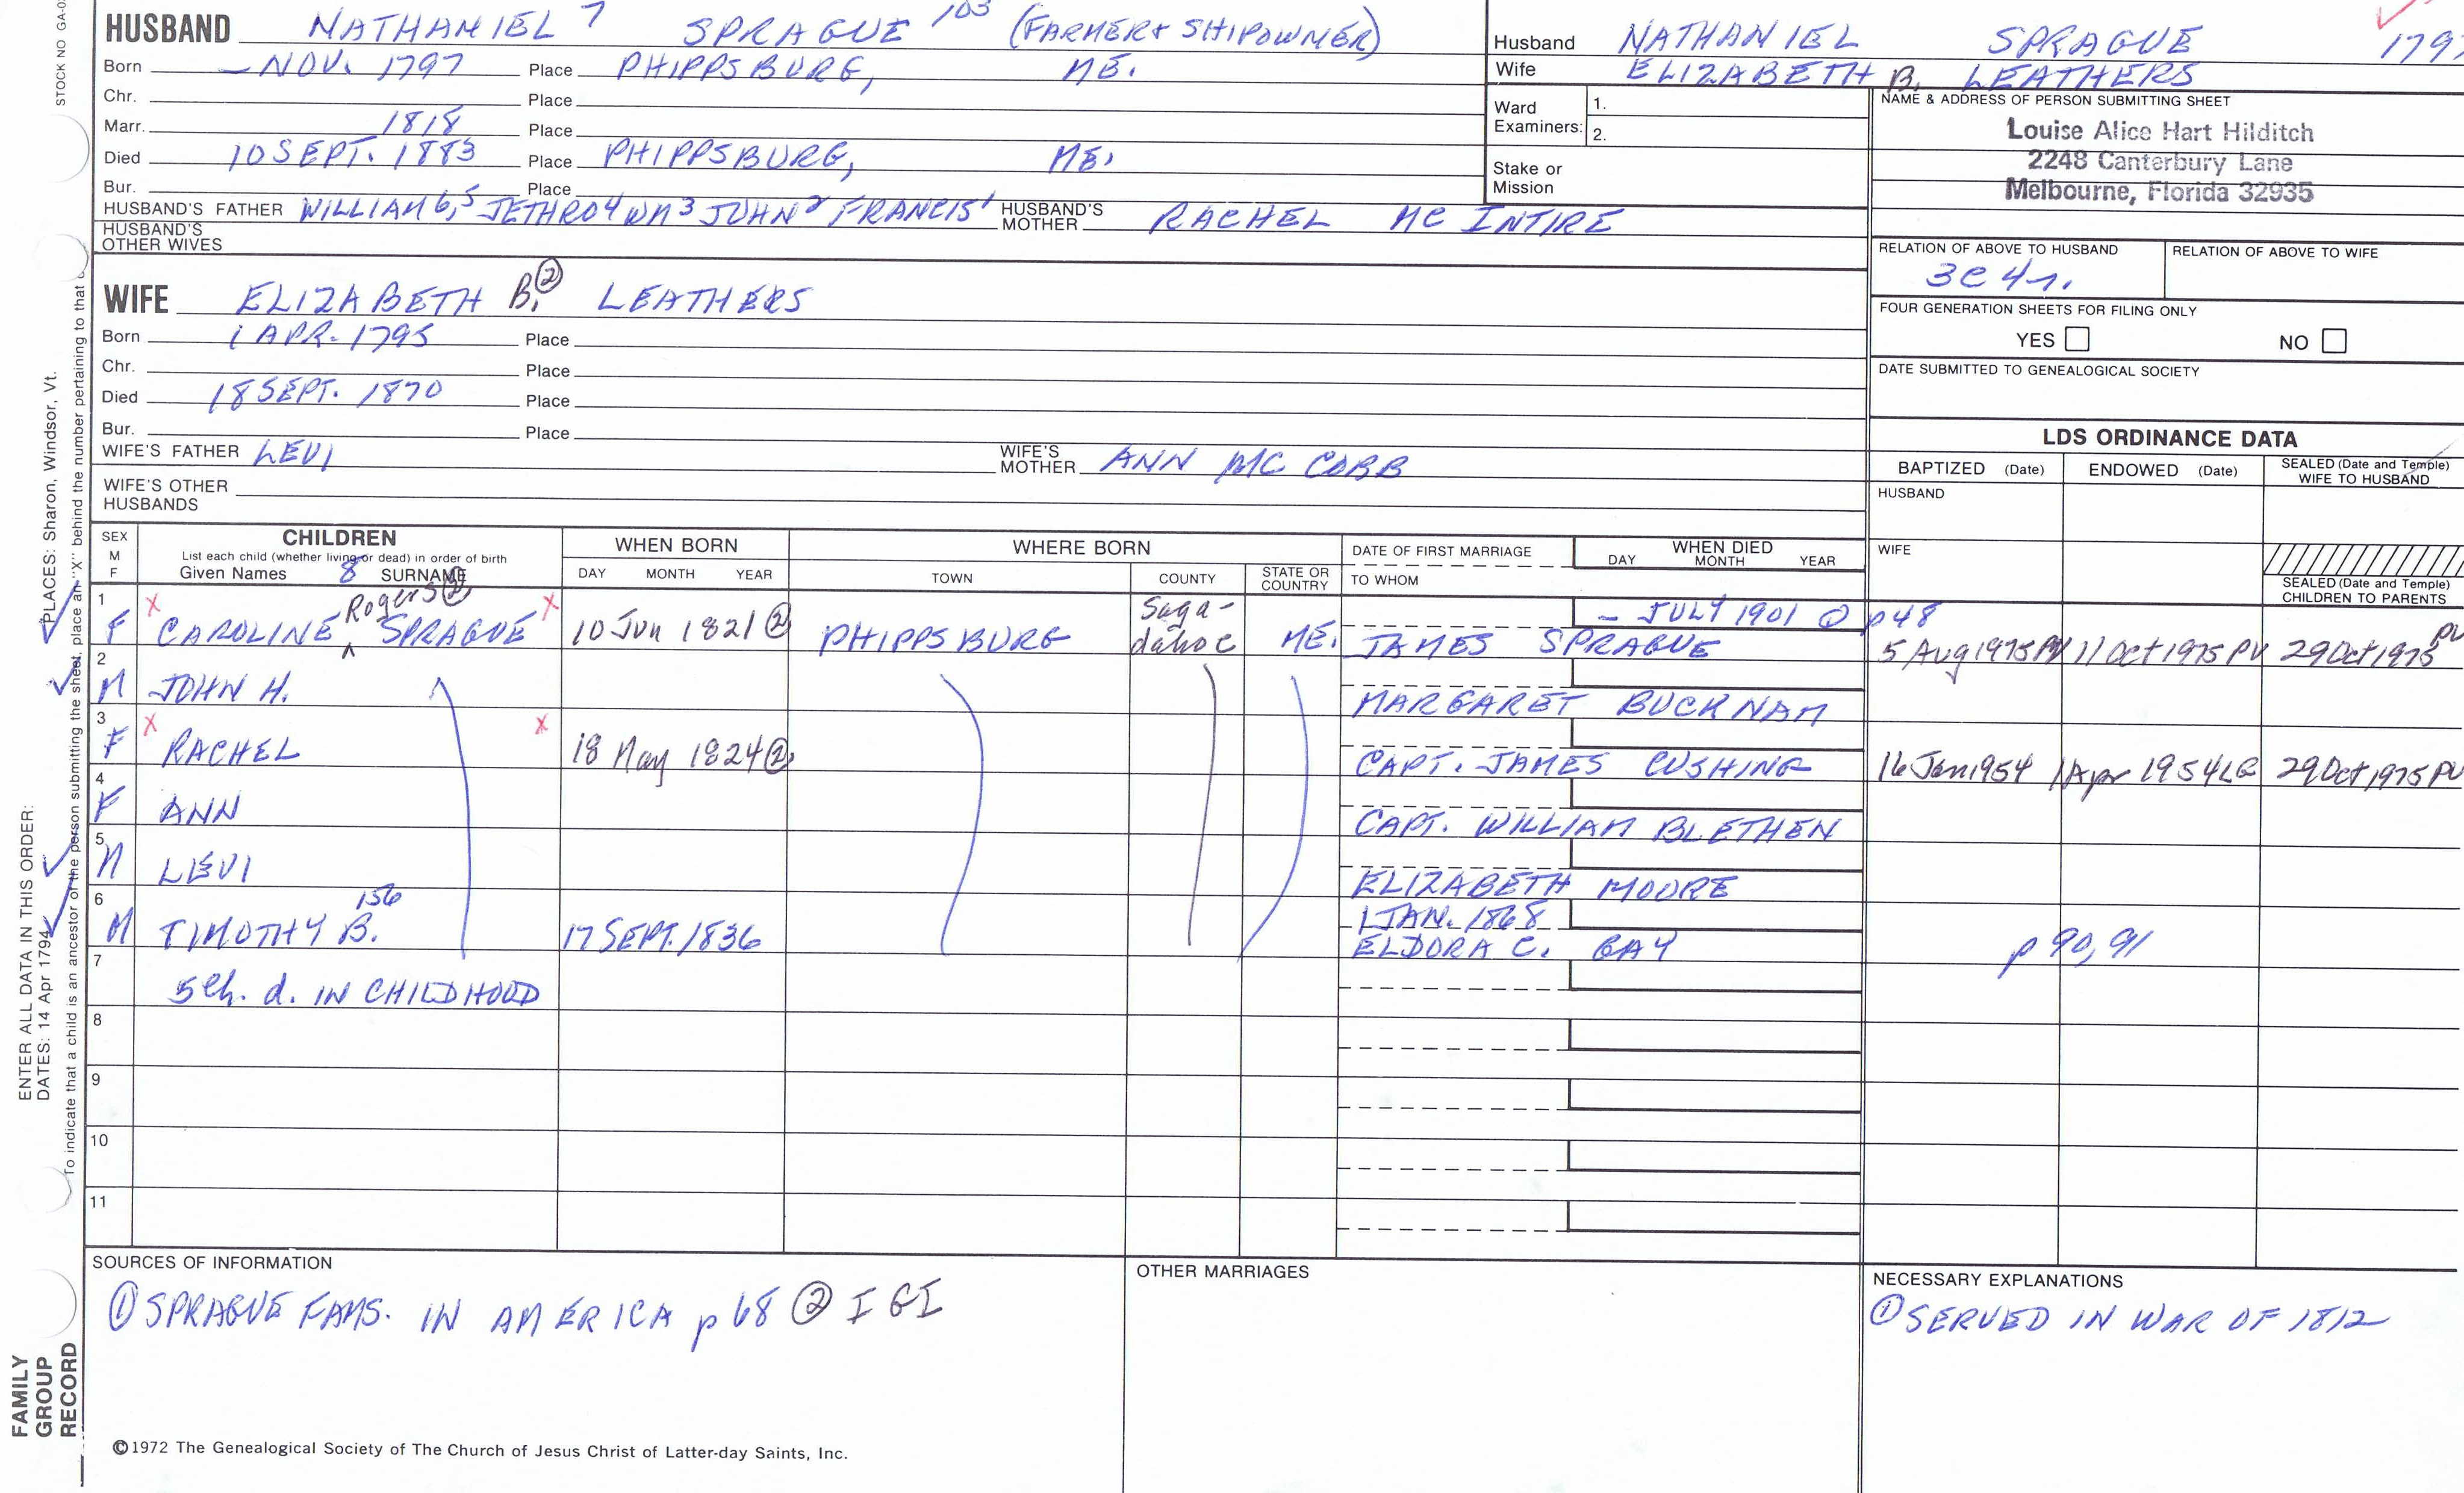 STOCK NO GA-0
HUSBAND NATHANIEL 7 SPRAGUE 103 (FARMER + SHIPOWNER)
Born – NOV. 1797 Place PHIPPSBURG, ME.
Chr. Place
Marr. 1818 Place
Died 10 SEPT. 1883 Place PHIPPSBURG, ME.
Bur. Place
HUSBAND'S FATHER WILLIAM 6,5 JETHRO 4 WM 3 JOHN 2 FRANCIS 1 HUSBAND'S MOTHER RACHEL MC INTIRE
HUSBAND'S OTHER WIVES
WIFE ELIZABETH B. ② LEATHERS
Born 1 APR. 1795 Place
Chr. Place
Died 18 SEPT. 1870 Place
Bur. Place
WIFE'S FATHER LEVI WIFE'S MOTHER ANN MC COBB
WIFE'S OTHER HUSBANDS
Husband NATHANIEL SPRAGUE 1797
Wife ELIZABETH B. LEATHERS
Ward Examiners: 1.
2.
Stake or Mission
NAME & ADDRESS OF PERSON SUBMITTING SHEET
Louise Alice Hart Hilditch
2248 Canterbury Lane
Melbourne, Florida 32935
RELATION OF ABOVE TO HUSBAND RELATION OF ABOVE TO WIFE
3C 4r.
FOUR GENERATION SHEETS FOR FILING ONLY
YES NO
DATE SUBMITTED TO GENEALOGICAL SOCIETY
LDS ORDINANCE DATA
BAPTIZED (Date) ENDOWED (Date) SEALED (Date and Temple) WIFE TO HUSBAND
HUSBAND
WIFE
SEALED (Date and Temple) CHILDREN TO PARENTS
SEX M F
CHILDREN
List each child (whether living or dead) in order of birth
Given Names 8 SURNAME
WHEN BORN
DAY MONTH YEAR
WHERE BORN
TOWN COUNTY STATE OR COUNTRY
DATE OF FIRST MARRIAGE
TO WHOM
WHEN DIED
DAY MONTH YEAR
1 F X CAROLINE Rogers ② SPRAGUE X 10 Jun 1821 ② PHIPPSBURG Sagadahoc ME. – JULY 1901 ② p48
JAMES SPRAGUE 5 Aug 1975 PV 11 Oct 1975 PV 29 Oct 1975 PV
2 M JOHN H. MARGARET BUCKNAM
3 F X RACHEL X 18 May 1824 ② CAPT. JAMES CUSHING 16 Jan 1954 1 Apr 1954 LG 29 Oct 1975 PV
4 F ANN CAPT. WILLIAM BLETHEN
5 M LEVI ELIZABETH MOORE
6 M TIMOTHY B. 156 17 SEPT. 1836 1 JAN. 1868
ELDORA C. GAY p 90, 91
7 5 ch. d. IN CHILDHOOD
8
9
10
11
SOURCES OF INFORMATION
① SPRAGUE FAMS. IN AMERICA p 68 ② IGI
OTHER MARRIAGES
NECESSARY EXPLANATIONS
① SERVED IN WAR OF 1812
©1972 The Genealogical Society of The Church of Jesus Christ of Latter-day Saints, Inc.
FAMILY GROUP RECORD
ENTER ALL DATA IN THIS ORDER:
DATES: 14 Apr 1794 PLACES: Sharon, Windsor, Vt.
To indicate that a child is an ancestor of the person submitting the sheet, place an "X" behind the number pertaining to that